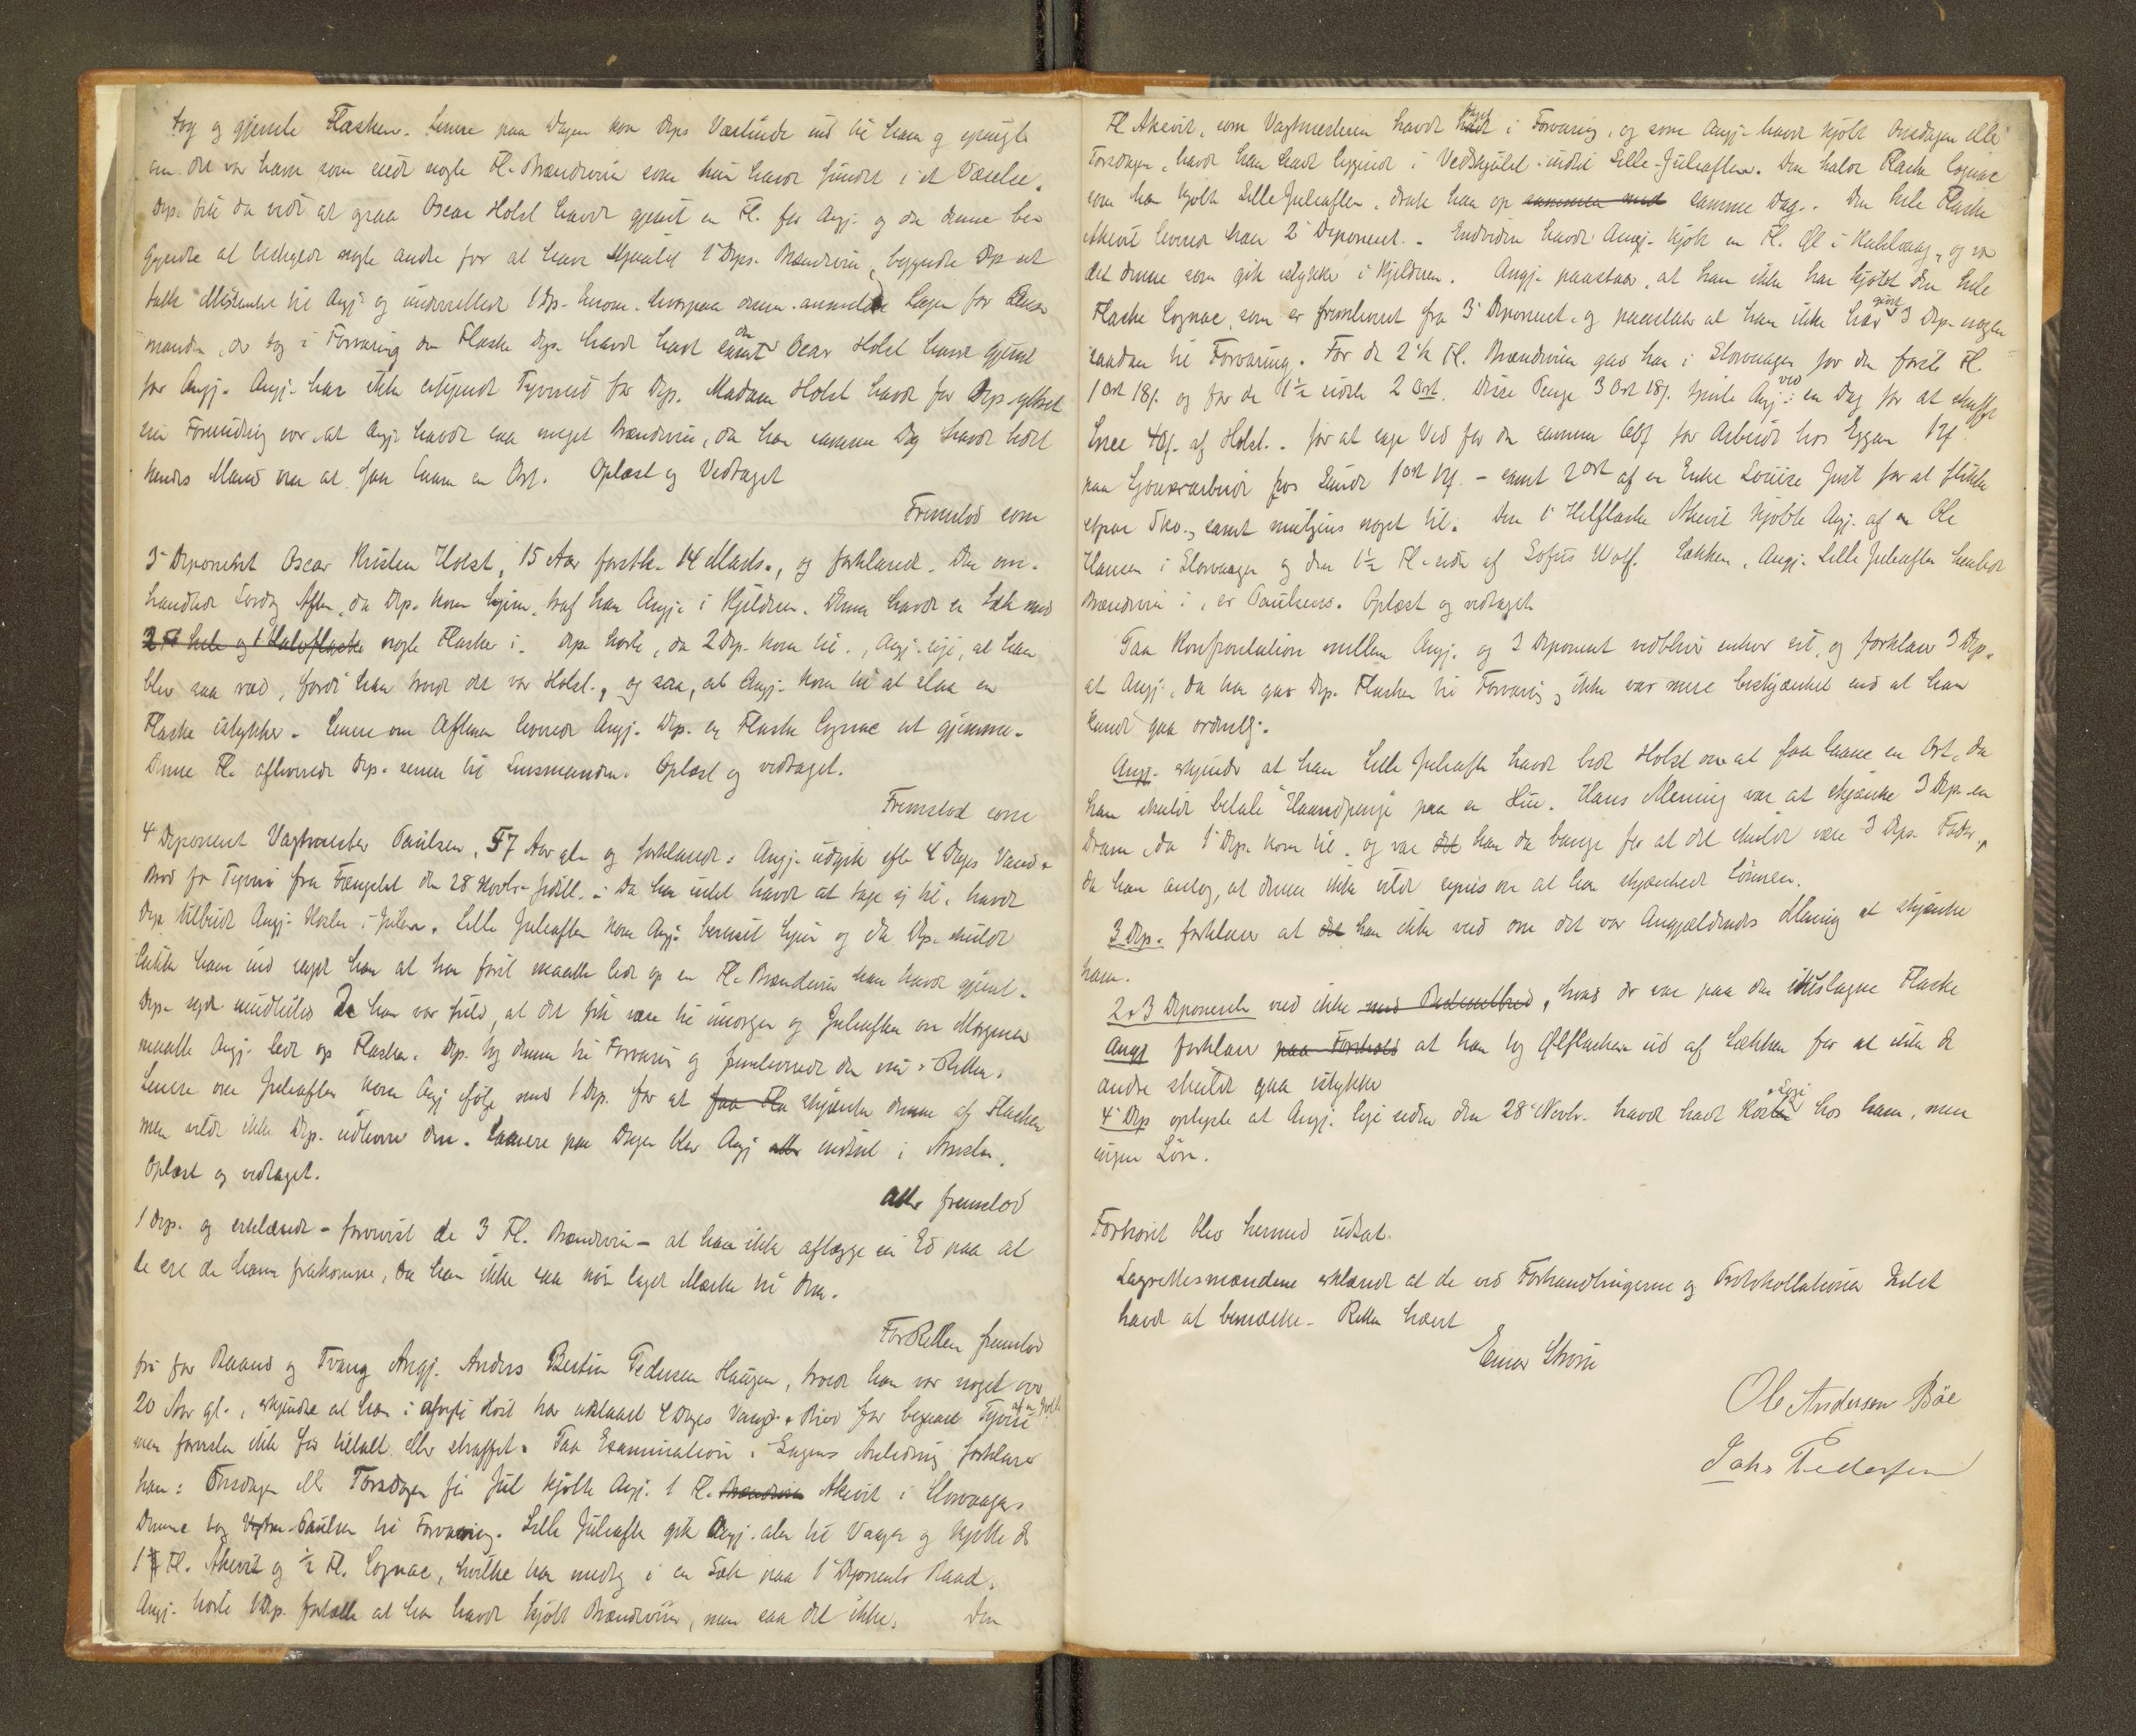 tog og gjemte Flasken. Senere paa Dagen kom Dps Værtinde ind til ham og spurgte
om det var ham som eiede nogle Fl. Brændeviin som hun havde fundet i et Værelse.
Dp. fik da vide at ogsaa Oscar Holst havde gjemt en Fl. for Angj. og da denne be
gyndte at beskylde nogle andre for at have stjaalet 1ste Dps. Brændeviin, begyndte Dp at
fatte Mistanke til Angj. og underrettede 1 Dp. herom. hvorpaa denne anmeldte Sagen for Lens
manden, der tog i Forvaring den Flaske Dp. havde havt samt den Oscar Holst havde gjemt
for Angj. Angj. har ikke erkjendt Tyveriet for Dp. Madam Holst havde for Dp. yttret
sin Forundring over at Angj. havde saa meget Brændeviin, da han samme Dag havde bedt
hendes Mand om at faa laane en Ort. Oplæst og Vedtaget
Fremstod som
3die Deponent Oscar Kristen Holst, 15 Aar forstk. 14 Marts., og forklared. Den om-
handlede Lørdag Aften, da Dp. kom hjem, traf han Angj. i Kjeldren. Denne havde en Sæk med
2 Fl hele og 1 Halvflaske nogle Flasker i. Dp. hørte, da 2 Dp. kom til, Angj. sige, at han
blev saa ræd, fordi han troede det var Holst., og saa, at Angj. kom til at slaa en
Flaske istykker. Senere om Aftenen leverede Angj. Dp. en Flaske Cognac at gjemme.
Denne Fl. afleverede Dp. senere til Lensmanden. Oplæst og vedtaget.
Fremstod som
4de Deponent Vagtmester Paulsen, 57 Aar gl. og forklarede: Angj. udgik efter 4 Dages Vand &
Brød for Tyveri fra Fængslet den 28 Novbr. sidstl. Da han intet havde at tage sig til, havde
Dp. tilbudt Angj. Kosten i Julen. Lille Juleaften kom Angj. beruset hjem og da Dp. skulde
lukke ham ind sagde han at han først maatte lede op en Fl. Brændeviin han havde gjemt.
Dp. sagde imidlertid da han var fuld, at det fik være til imorgen og Juleaften om Morgenen
maatte Angj. lede op Flasken. Dp. tog denne til Forvaring og fremleverede den nu i Retten.
Senere om Juleaften kom Angj ifølge med 1 Dp. for at faa Fla skjænke denne af Flasken
men vilde ikke Dp. udlevere den. Senere paa Dagen blev Angj atter indsat i Arresten.
Oplæst og vedtaget.
Atter fremstod
1 Dp. og erklærede - forevist de 3 Fl. Brændeviin - at han ikke aflægge sin Ed paa at
de ere de ham frakomne, da han ikke saa nøie lagde Mærke til dem.
For Retten fremstod
fri for Baand og Tvang Angj. Anders Bertin Pedersen Haugen, troede han var noget over
20 Aar gl., erkjendte at han i afvigte Høst har udstaaet 4 Dages Vand & Brød for begaaet Tyveri
men forresten ikke før tiltalt eller straffet. Paa Examination i Sagens Anledning forklarer
han: Onsdagen eller Torsdagen før Jul kjøbte Angj. 1 Fl. Brændeviin Akevit i Storvaagen.
Denne tog Vagtm. Paulsen til Forvaring. Lille Juleaften gik Angj. atter til Vaagen og kjøbte
1 Fl. Akevit og ½ Fl. Cognac, hvilke han medtog i en Sæk paa 1ste Deponents Baad.
Angj. hørte 1 Dp. fortælle at han havde kjøbt Brændeviin, men saa det ikke. Den
Fl Akevit, som Vagtmesteren havde havt taget i Forvaring, og som Angj. havde kjøbt Onsdagen eller
Torsdagen, havde han havt liggende i Vedskjulet indtil Lille-Juleaften. Den halve Flaske Cognac
som han kjøbte Lille Juleaften, drak han op sammen med samme Dag. Den hele Flaske
Akevit leverede han 2den Deponent. Endvidere havde Angj. kjøbt en Fl. Øl i Kabelvaag, og var
det denne som gik istykker i Kjeldren. Angj. paastaar, at han ikke har kjøbt den hele
Flaske Cognac, som er fremleveret fra 3die Deponent og paastaar at han ikke har givet 3 Dp. nogen
saadan til Forvaring. For de 2½ Fl. Brændeviin gav han i Storvaagen for den første Fl.
1 Ort 18 s. og for de 1½ sidste 2 Ort. Disse Penge 3 Ort 18 s. tjente Angj. ved en Dag for at skuffe
Snee 40 s. af Holst. - for at sage Ved for den samme for Arbeide hos Eggen 12 s
paa Gjøvearbeide hos Lund 1 Ort 12 s. - samt 2 Ort af en Enke Lovise Just for at flikke
etpar Sko, samt muligens noget til. Den 1ste Helflaske Akevit kjøbte Angj. af en Ole
Hansen i Storvaagen og den 1½ Fl. sidste af Sofus Wolf. Sækken, Angj. Lille Juleaften hentede
Brændeviin i, er Paulsens. Oplæst og vedtaget.
Paa Konfrontation mellem Angj. og 3 Deponent vedbliver enhver sit, og forklarer 3 Dp.
at Angj., da han gav Dp. Flasken til Forvaring, ikke var mere beskjænket end at han
kunde gaa ordentlig.
Angj. erkjender at han Lille Juleaften havde bedt Holst om at faa laane en Ort, da
han skulde betale Haandpenge paa en Hue. Hans Mening var at skjænke 3 Dp. en
Dram, da 1ste Dp. kom til, og var det han da bange for at det skulde være 3 Dps. Fader,
da han antog, at denne ikke vilde synes om at han skjænkede Sønnen.
3 Dp. forklarer at det han ikke ved om det var Angjældendes Mening at skjænke
ham.
2 & 3 Deponenter ved ikke med Bestemthed, hvad der var paa den itulslagne Flaske
Angj forklarer paa Forehold at han tog Ølflasken ud af Sækken for at ikke de
andre skulde gaa istykker
4de Dp oplyste at Angj. lige siden den 28de Novbr. havde havt Kost & Logi hos ham, men
ingen Løn.
Forhøret blev hermed udsat.
Lagrettesmændene erklærede at de ved Forhandlingerne og Protokollationen Intet
havde at bemærke. Retten hævet
Einar Strøm
Ole Andersen Bøe
Johs Pedersen